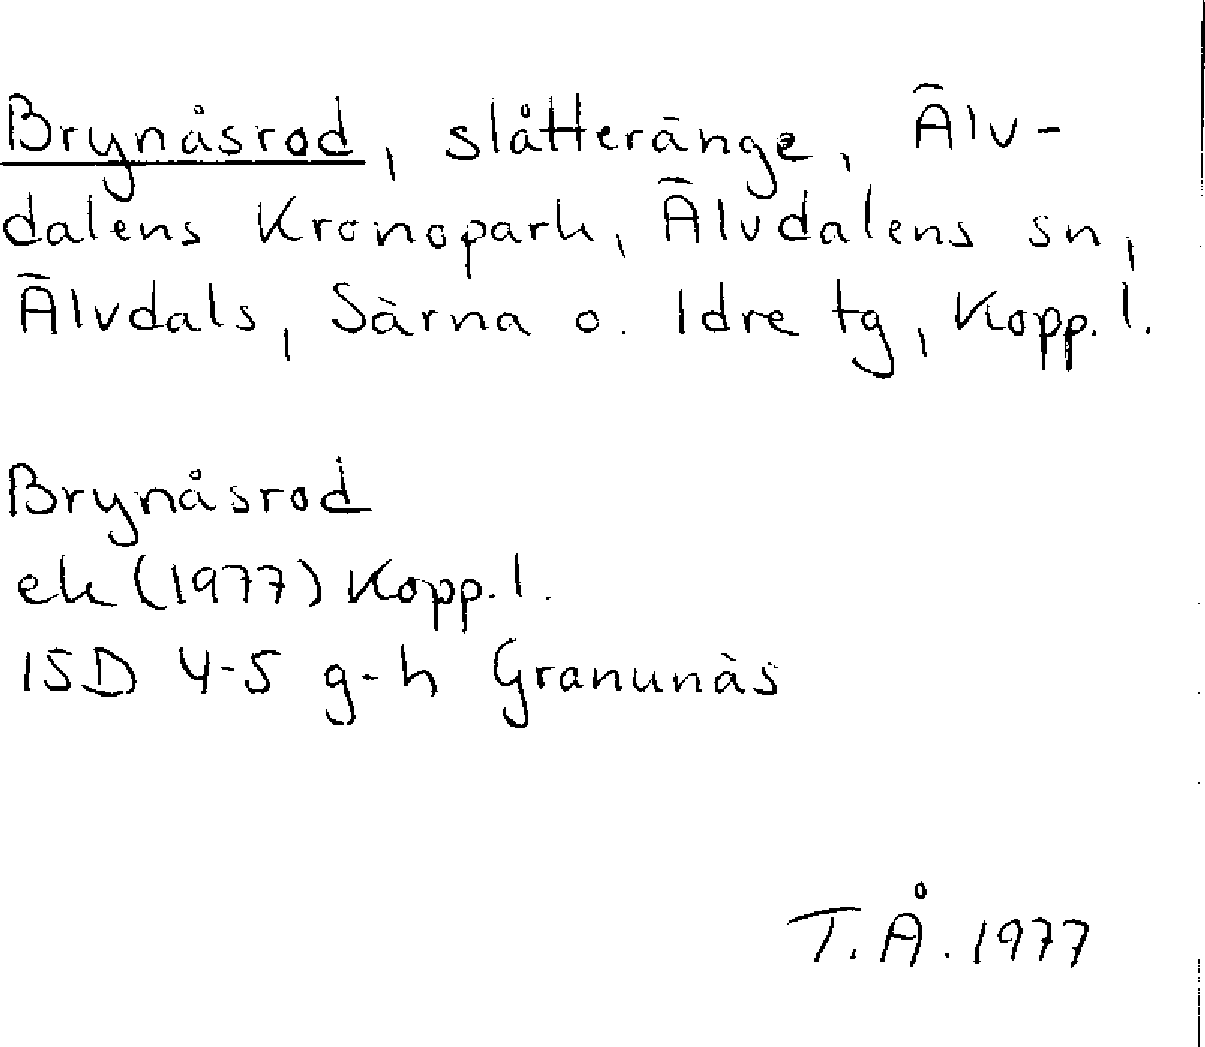 Brynåsrod, slåtteränge, Älv-
dalens Kronopark, Älvdalens sn,
Älvdals, Särna o. Idre tg, Kopp. l.
Brynåsrod
ek (1977) Kopp. l.
15D 4-5 g-h Granunäs
T. Å. 1977